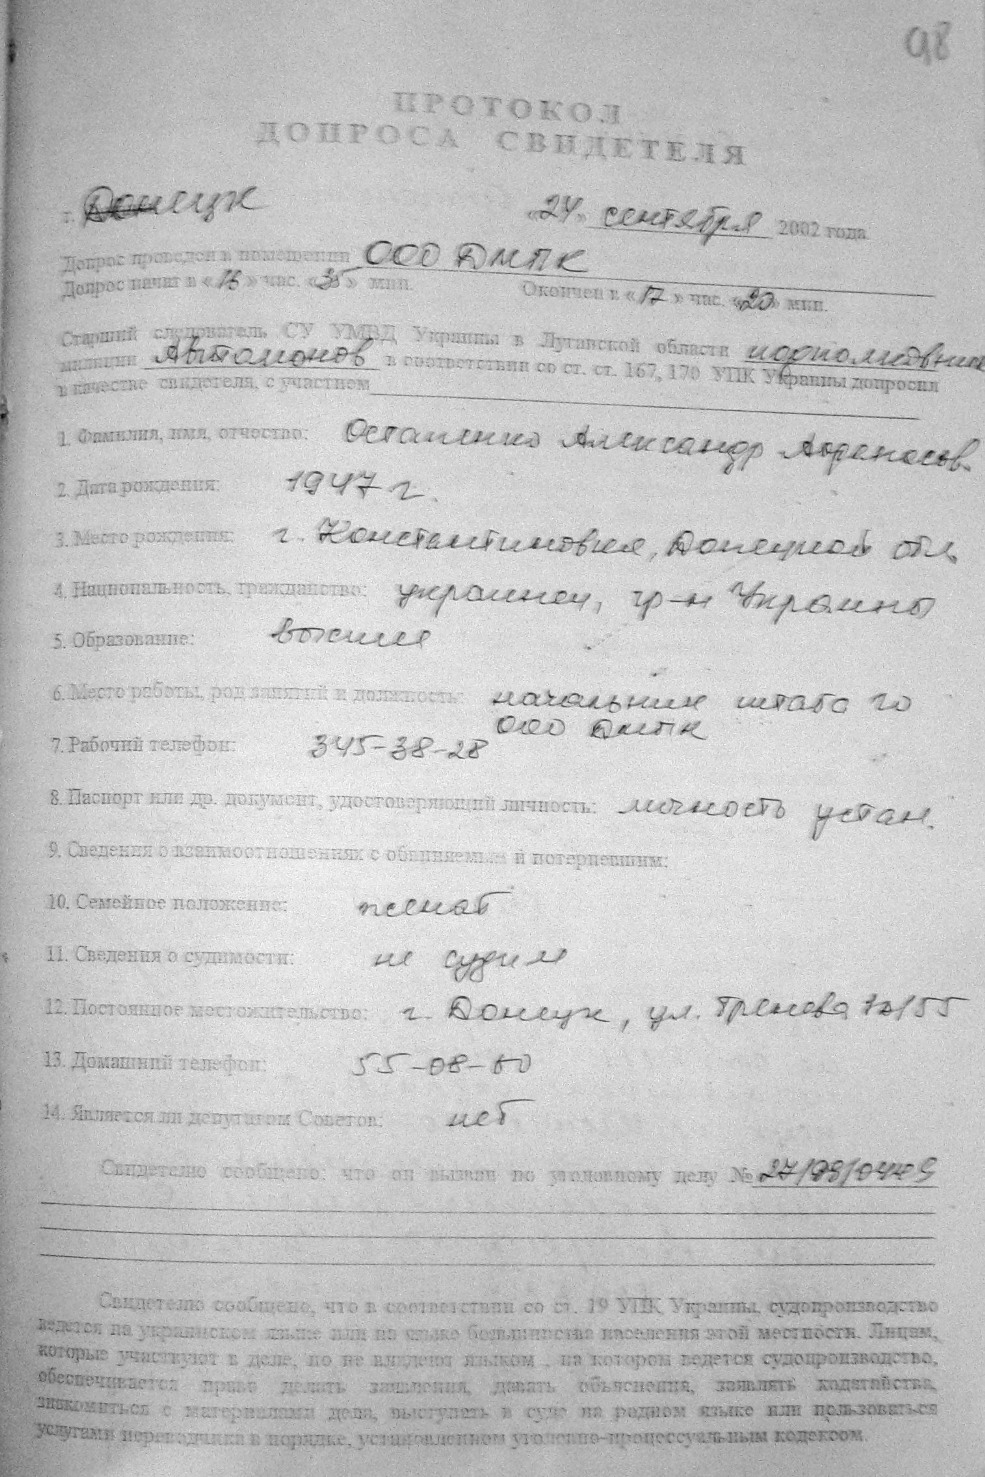 98
ПРОТОКОЛ
ДОПРОСА СВИДЕТЕЛЯ
г. Донецк «24» сентября 2002 года
Допрос проведен в помещении ООО ДМПК
Допрос начат в «16» час. «35» мин. Окончен в «17» час. «20» мин.
Старший следователь СУ УМВД Украины в Луганской области подполковник
милиции Автомонов в соответствии со ст. ст. 167, 170 УПК Украины допросил
в качестве свидетеля, с участием
1. Фамилия, имя, отчество: Остапенко Александр Афанасов.
2. Дата рождения: 1947 г.
3. Место рождения: г. Константиновка, Донецкой обл.
4. Национальность, гражданство: украинец, гр-н Украины
5. Образование: высшее
6. Место работы, род занятий и должность: начальник штаба ГО
ООО ДМПК
7. Рабочий телефон: 345-38-28
8. Паспорт или др. документ, удостоверяющий личность: личность устан.
9. Сведения о взаимоотношениях с обвиняемым и потерпевшим:
10. Семейное положение: женат
11. Сведения о судимости: не судим
12. Постоянное местожительство: г. Донецк, ул. Тренева
13. Домашний телефон: 55-08-60
14. Является ли депутатом Советов: нет
Свидетелю сообщено: что он вызван по уголовному делу №
Свидетелю сообщено, что в соответствии со ст. 19 УПК Украины, судопроизводство
ведется на украинском языке или на языке большинства населения этой местности. Лицам,
которые участвуют в деле, но не владеют языком , на котором ведется судопроизводство,
обеспечивается право делать заявления, давать объяснения, заявлять ходатайства,
знакомиться с материалами дела, выступать в суде на родном языке или пользоваться
услугами переводчика в порядке, установленном уголовно-процессуальным кодексом.